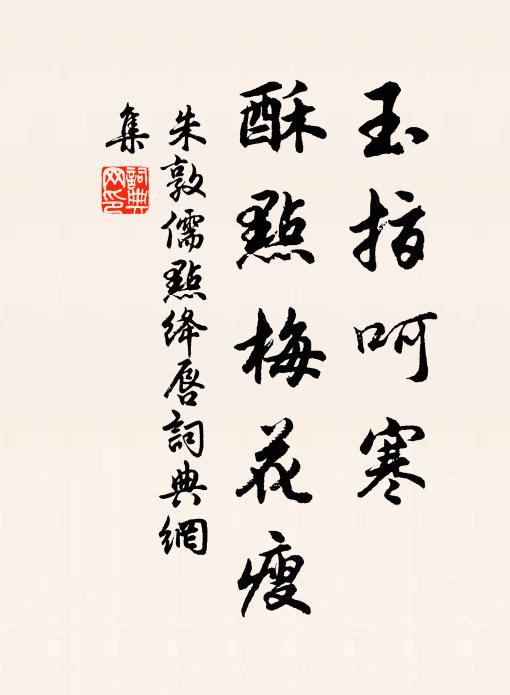 玉指呵寒
酥點梅花瘦
朱敦儒點绛唇詞典網
集
詞典
网印